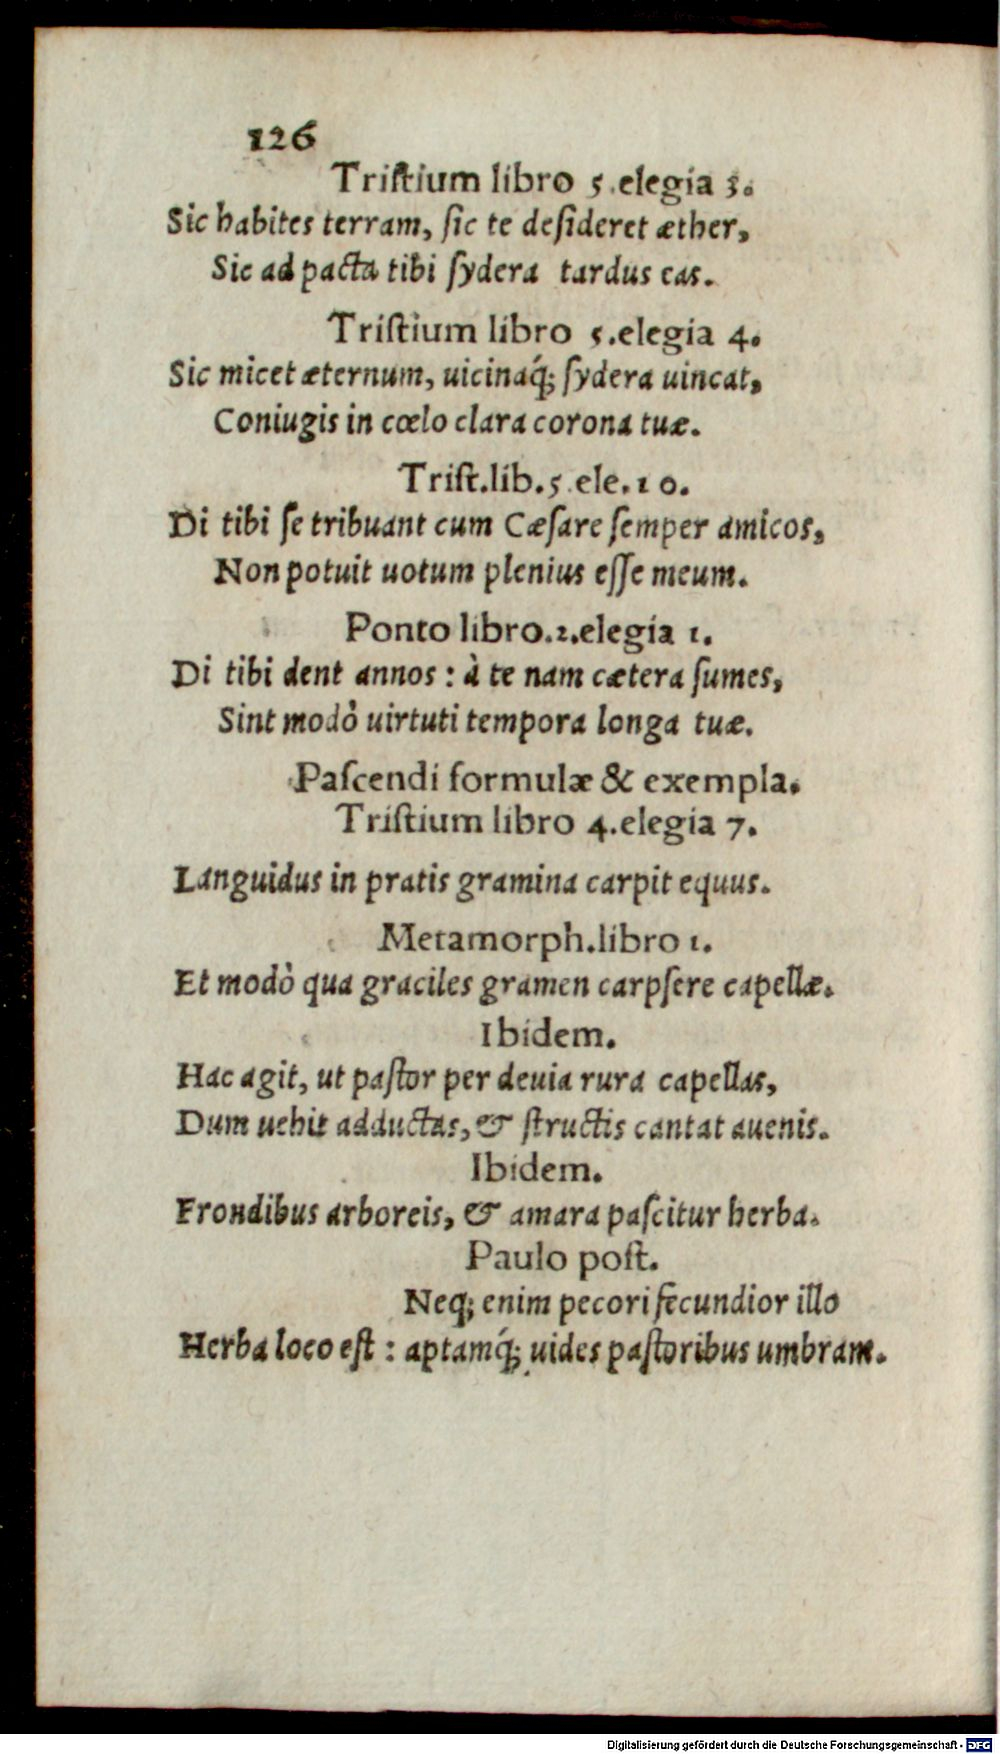 126
Triſtium libro 5.elegia 3.
Sic habites terram, ſic te deſideret æther,
Sic ad pacta tibi ſydera tardus eas.
Triſtium libro 5.elegia 4.
Sic micet æternum, uicinaq́; ſydera uincat,
Coniugis in cœlo clara corona tuæ.
Triſt.lib.5 ele.10.
Di tibi ſe tribuant cum Cæſare ſemper amicos,
Non potuit uotum plenius eſſe meum.
Ponto libro.2.elegia 1.
Di tibi dent annos : à te nam cætera ſumes,
Sint modò uirtuti tempora longa tuæ.
Paſcendi formulæ & exempla.
Triſtium libro 4.elegia 7.
Languidus in pratis gramina carpit equus.
Metamorph.libro 1.
Et modò qua graciles gramen carpſere capellæ.
Ibidem.
Hac agit, ut paſtor per deuia rura capellas,
Dum uehit adductas, & ſtructis cantat auenis.
Ibidem.
Frondibus arboreis, & amara paſcitur herba.
Paulo poſt.
Neq; enim pecori fecundior illo
Herba loco eſt : aptamq́; uides paſtoribus umbram.
Digitalisierung gefördert durch die Deutsche Forschungsgemeinschaft - DFG